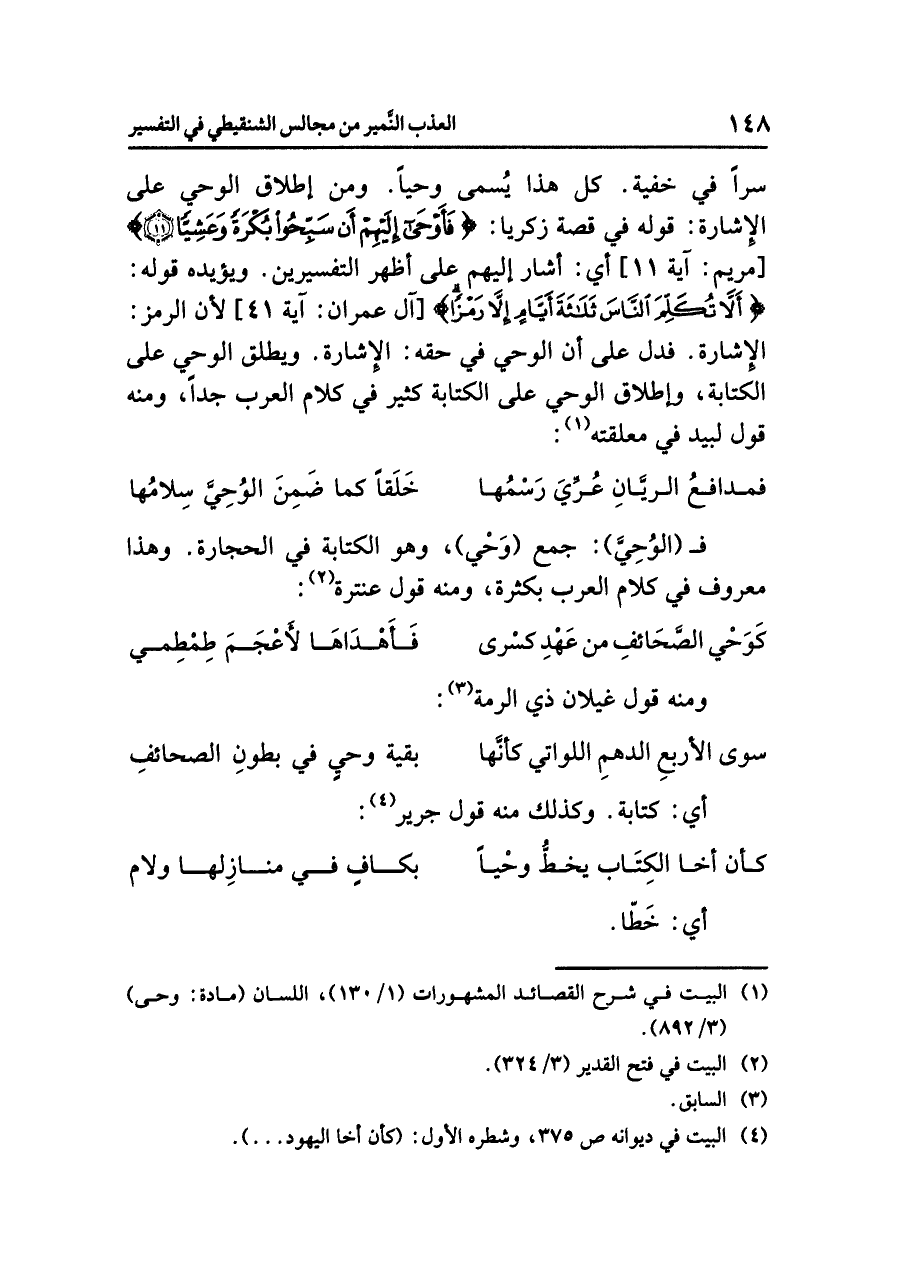 ١٤٨ العذب النَّمير من مجالس الشنقيطي في التفسير
سراً في خفية. كل هذا يُسمى وحياً. ومن إطلاق الوحي على
الإشارة: قوله في قصة زكريا: ﴿ فَأَوْحَىٰٓ إِلَيْهِمْ أَن سَبِّحُوا۟ بُكْرَةً وَعَشِيًّا ۝١١﴾
[مريم: آية ١١] أي: أشار إليهم على أظهر التفسيرين. ويؤيده قوله:
﴿ أَلَّا تُكَلِّمَ ٱلنَّاسَ ثَلَٰثَةَ أَيَّامٍ إِلَّا رَمْزًاۗ﴾ [آل عمران: آية ٤١] لأن الرمز:
الإشارة. فدل على أن الوحي في حقه: الإشارة. ويطلق الوحي على
الكتابة، وإطلاق الوحي على الكتابة كثير في كلام العرب جداً، ومنه
قول لبيد في معلقته(١):
فمـدافـعُ الـريَّـانِ عُـرِّيَ رَسْمُهـا خَلَقاً كما ضَمِنَ الوُحِيَّ سِلامُها
فـ (الوُحِيَّ): جمع (وَحْي)، وهو الكتابة في الحجارة. وهذا
معروف في كلام العرب بكثرة، ومنه قول عنترة(٢):
كَوَحْي الصَّحَائفِ من عَهْدِ كسْرى فَـأَهْـدَاهَـا لأَعْجَـمَ طِمْطِمـي
ومنه قول غيلان ذي الرمة(٣):
سوى الأربعِ الدهمِ اللواتي كأنَّها بقية وحيٍ في بطونِ الصحائفِ
أي: كتابة. وكذلك منه قول جرير(٤):
كـأن أخـا الكِتَـاب يخـطُّ وحْيـاً بكـافٍ فـي منـازِلهـا ولام
أي: خَطّا.
(١) البيت في شرح القصائد المشهورات (١/ ١٣٠)، اللسان (مادة: وحى)
(٣/ ٨٩٢).
(٢) البيت في فتح القدير (٣/ ٣٢٤).
(٣) السابق.
(٤) البيت في ديوانه ص ٣٧٥، وشطره الأول: (كأن أخا اليهود...).